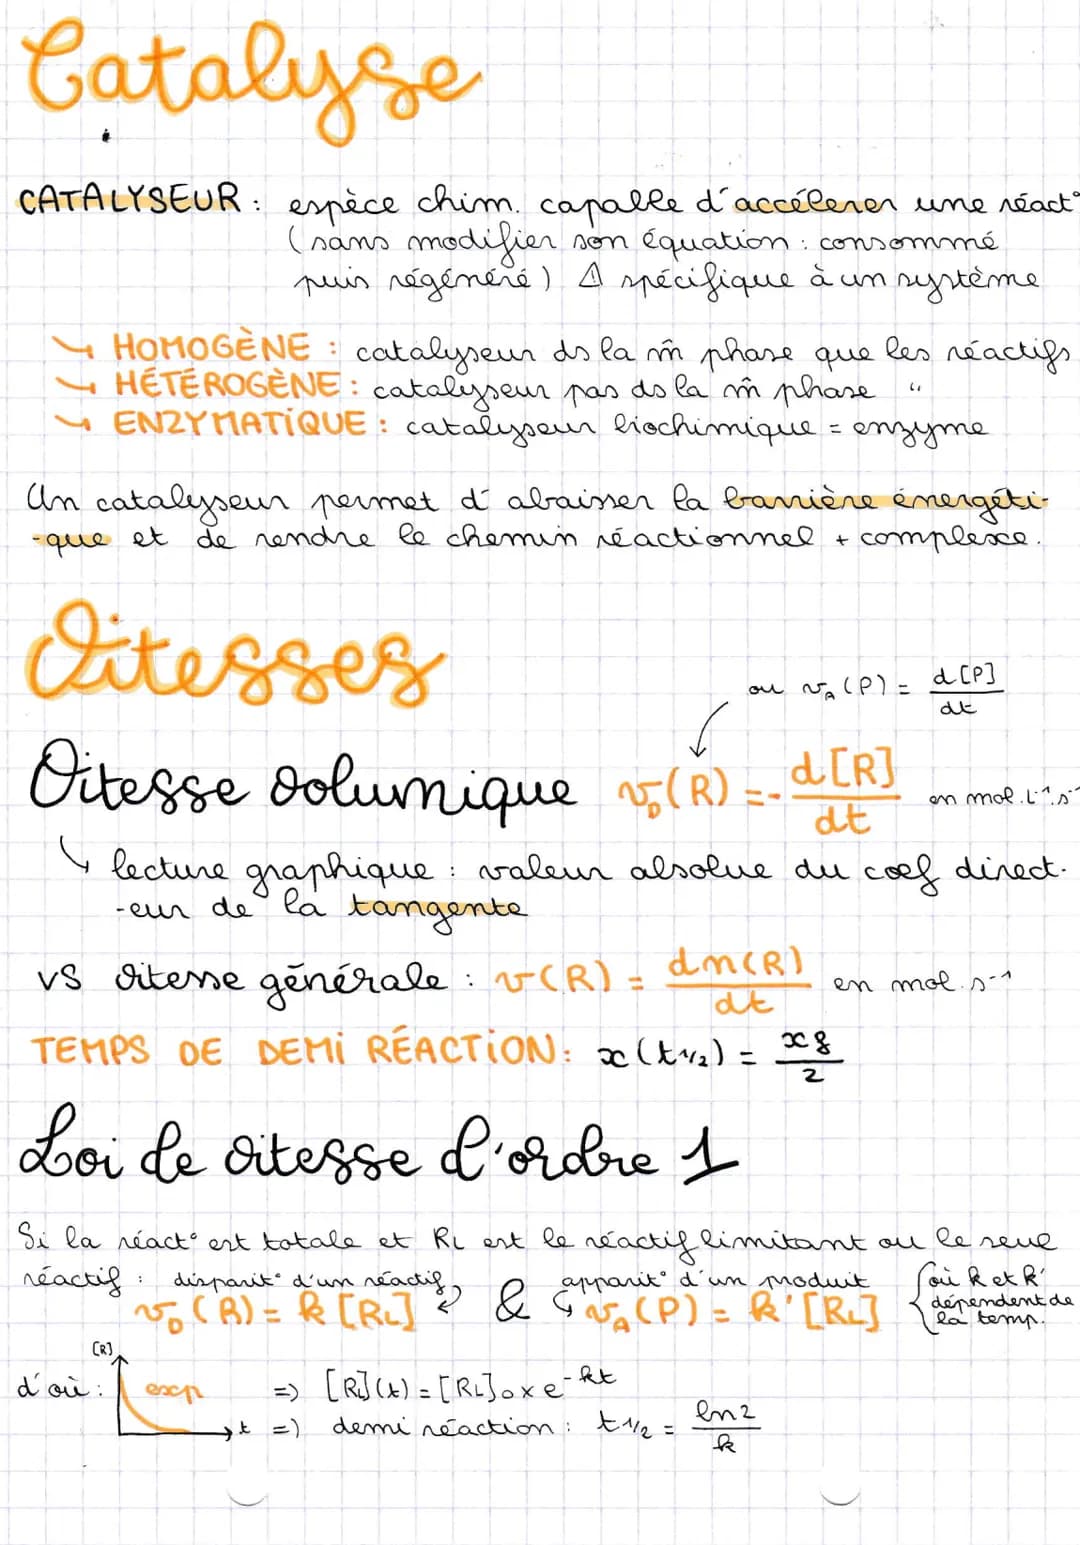 Catalyse
CATALYSEUR : espèce chim. capable d'accélerer une réact°
(sans modifier son équation : consommé
puis régénéré) ⚠ spécifique à un système
↳ HOMOGÈNE : catalyseur ds la m̂ phase que les réactifs
↳ HÉTÉROGÈNE : catalyseur pas ds la m̂ phase "
↳ ENZYMATIQUE : catalyseur biochimique = enzyme
Un catalyseur permet d'abaisser la barrière énergéti-
-que et de rendre le chemin réactionnel + complexe.
Vitesses
ou v_A(P) = d[P]/dt
Vitesse volumique v_D(R) = - d[R]/dt en mol.L⁻¹.s⁻¹
↳ lecture graphique : valeur absolue du coef direct-
-eur de la tangente
vs vitesse générale : v(R) = dn(R)/dt en mol.s⁻¹
TEMPS DE DEMI RÉACTION : x(t1/2) = xf/2
Loi de vitesse d'ordre 1
Si la réact° est totale et RL est le réactif limitant ou le seul
réactif : disparit° d'un réactif & apparit° d'un produit
v_D(R) = k [RL] v_A(P) = k' [RL] { où k et k' dépendent de la temp.
[R]
d'où : exp => [RL](t) = [RL]₀ x e^-kt
t => demi réaction : t1/2 = ln2/k